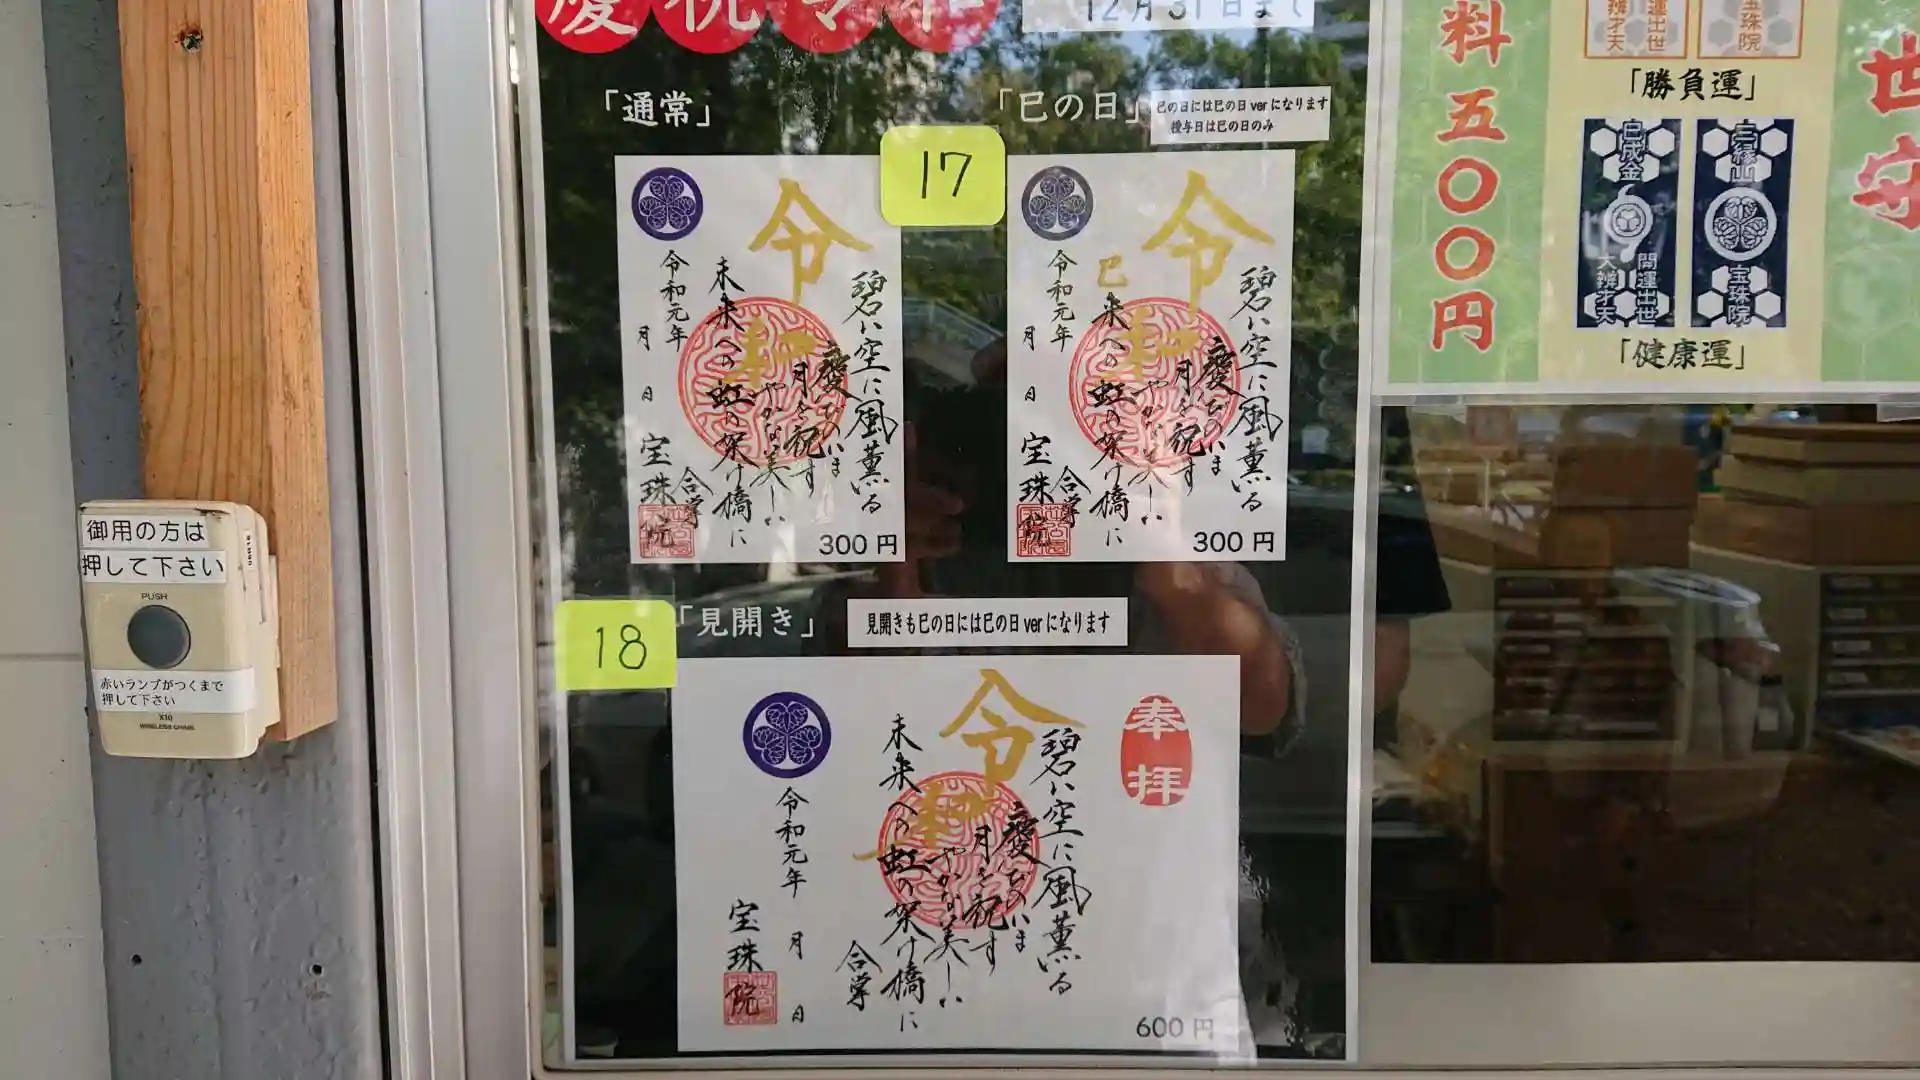 慶祝令和
12月31日まで
「通常」
「巳の日」
巳の日には巳の日verになります
授与日は巳の日のみ
17
令和
碧い空に風薫る
慶びのいま
月を祝す
やかな美しい
未来への虹の架け橋に
合掌
令和元年
月
日
宝珠院
300円
令和
巳
碧い空に風薫る
慶びのいま
月を祝す
やかな美しい
来への虹の架け橋に
合掌
令和元年
月
日
宝珠院
300円
18
「見開き」
見開きも巳の日には巳の日verになります
奉拝
令和
碧い空に風薫る
慶びのいま
月を祝す
やかな美しい
未来への虹の架け橋に
合掌
令和元年
月
日
宝珠院
600円
御用の方は
押して下さい
PUSH
赤いランプがつくまで
押して下さい
X10
WIRELESS CHIME
料五〇〇円
「勝負運」
巳成金
開運出世
大辨才天
三縁山
宝珠院
「健康運」
世
守